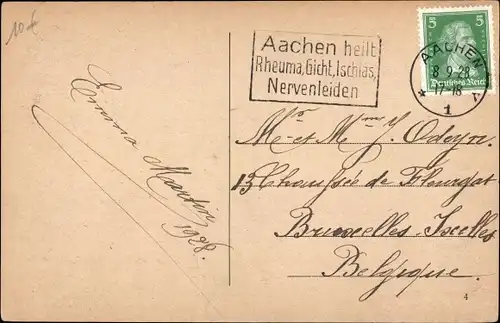 10 €
Aachen heilt
Rheuma, Gicht, Ischias,
Nervenleiden
5 5
Deutsches Reich
AACHEN
8.9.28
17-18
* 1
Emma Martin
1928.
Mr et Mme Odeyn.
13 Chaussée de Fleurgat
Bruxelles-Ixelles
Belgique.
4